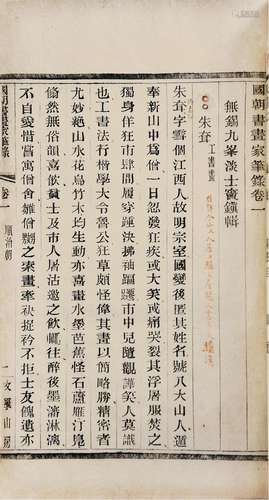 國朝書畫家筆錄卷一
無錫九峯淡士竇鎮輯
朱耷 工書畫
朱耷字雪個江西人故明宗室國變後匿其姓名號八大山人遁
奉新山中為僧一日忽發狂疾或大笑或痛哭裂其浮屠服焚之
獨身佯狂市肆間履穿踵決拂袖蹁躚市中兒隨觀譁笑人莫識
也工書法行楷學大令魯公狂草頗怪偉其畫以簡略勝精密者
尤妙絕山水花鳥竹木均生動亦喜畫水墨芭蕉怪石蘆雁汀鳧
翛然無俗韻喜與市人屠沽遨之飲輒往醉後墨瀋淋漓
不自愛惜嘗寓僧舍雛僧嬲之索畫牽袂捉衿不拒士友餽遺亦
國朝書畫家筆錄 卷一 順治朝 一 文學山房